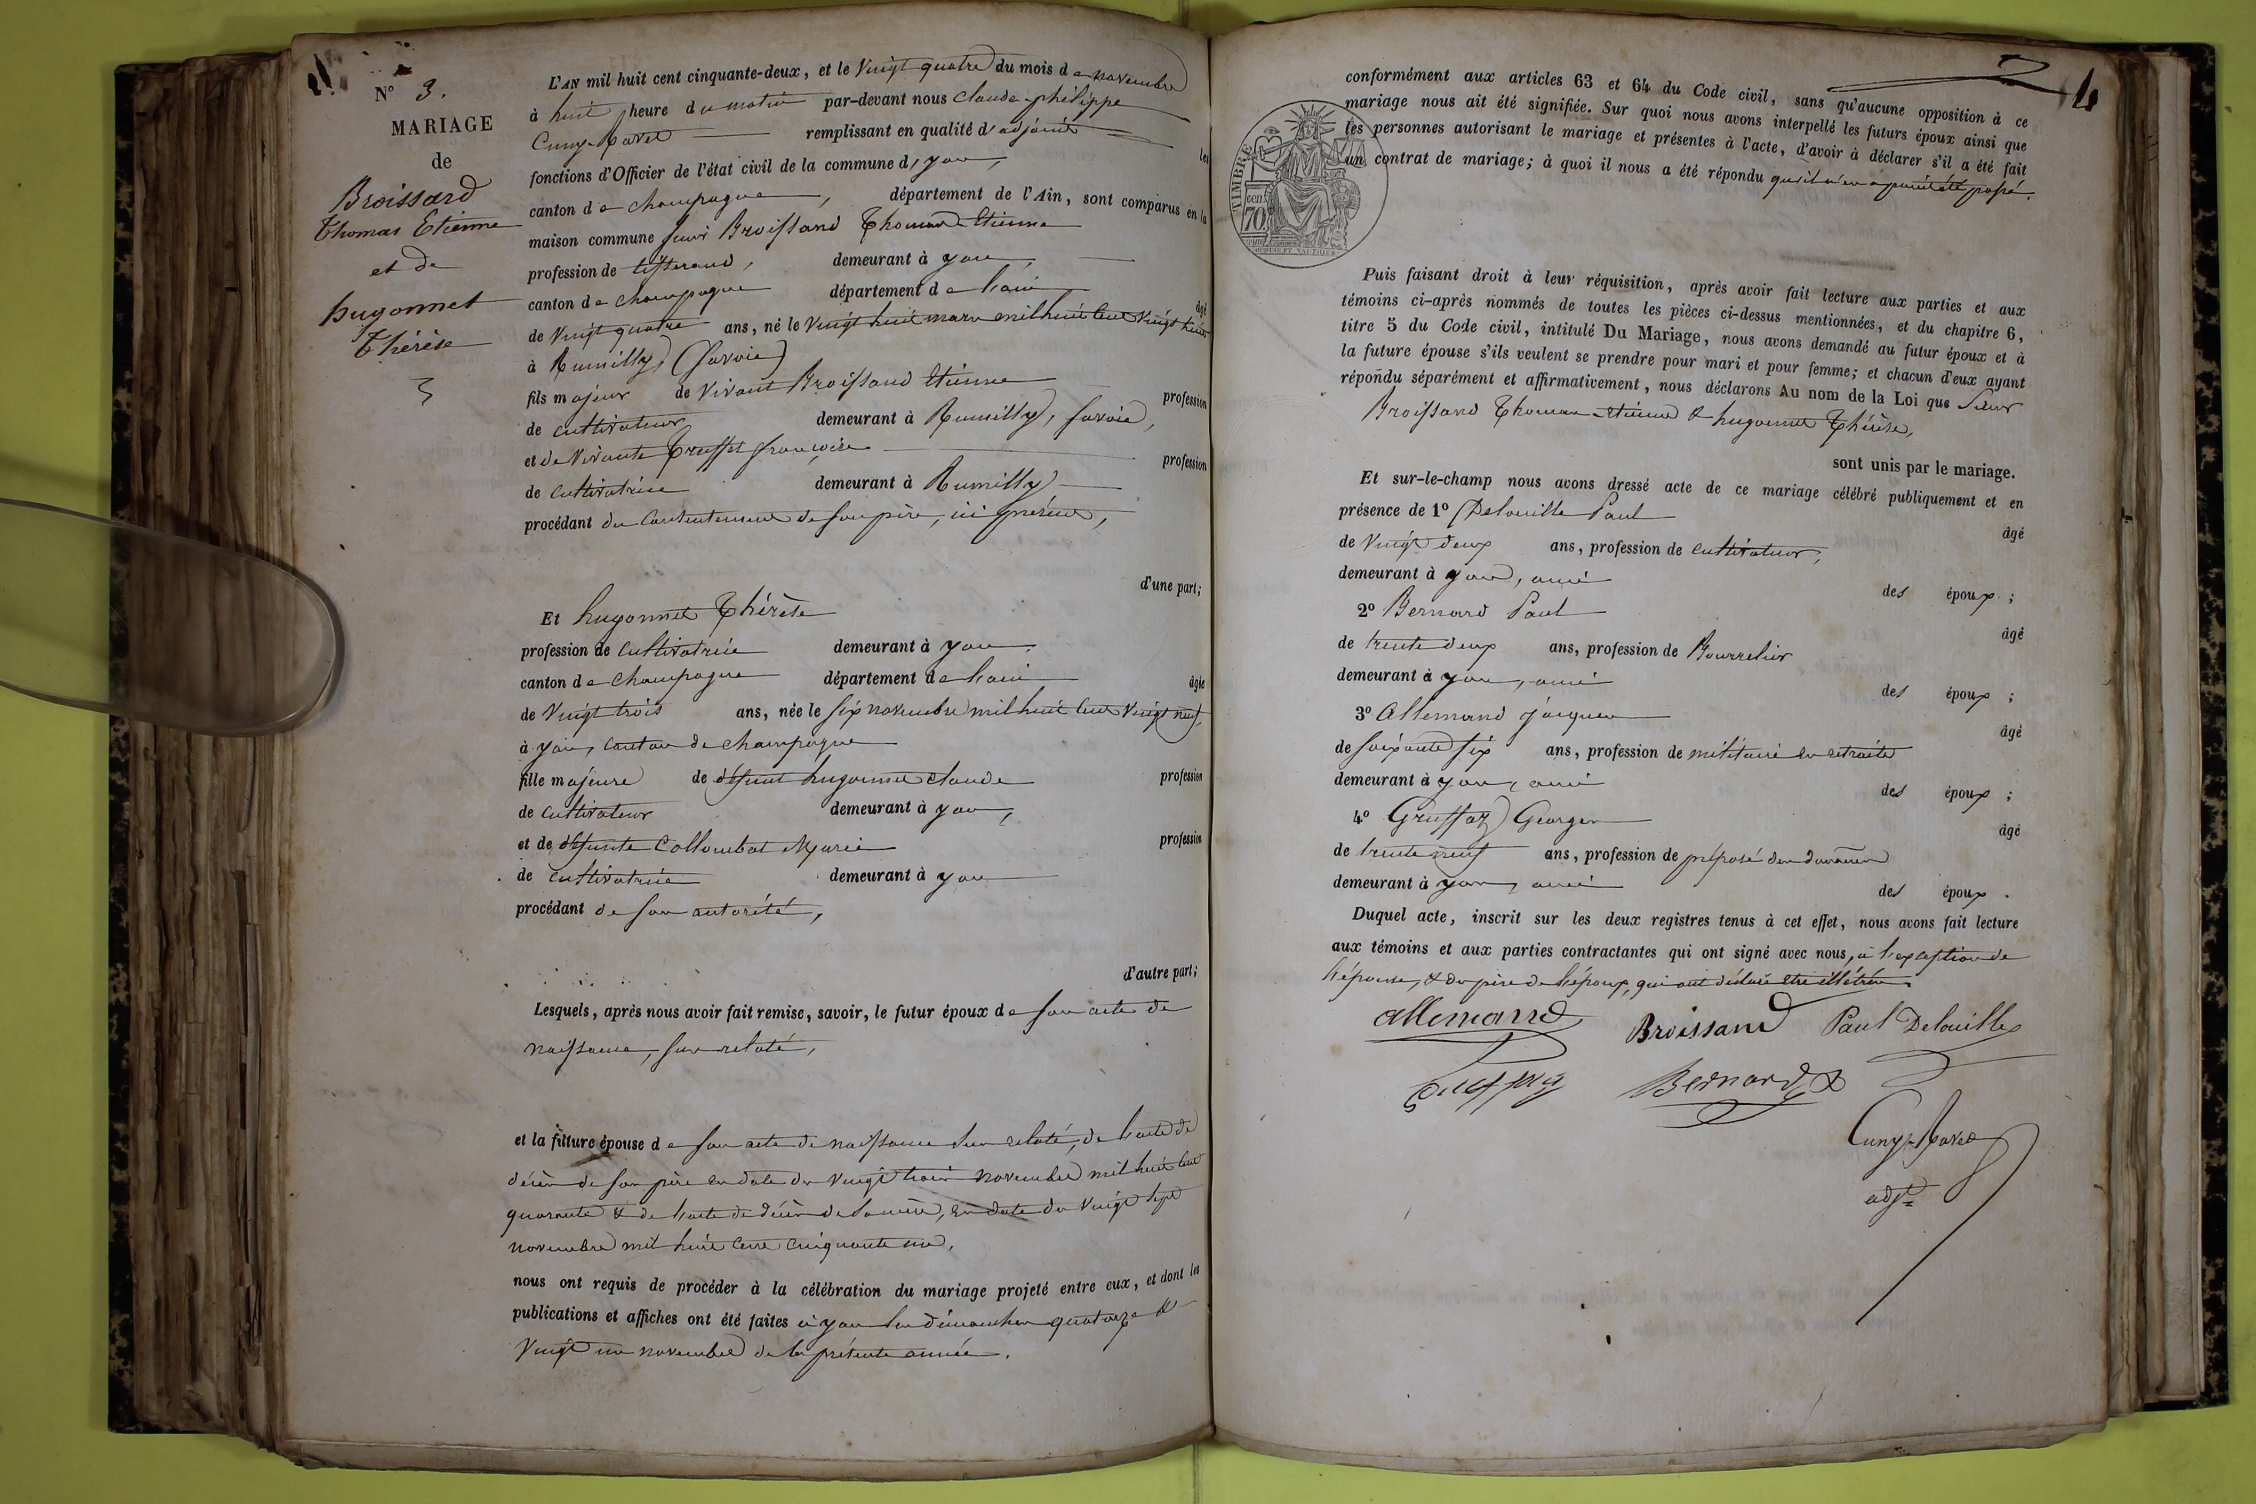 N° 3.
MARIAGE
de
Broissard
Thomas Etienne
et de
hugonnet
Thérèse
L'AN mil huit cent cinquante-deux, et le Vingt quatre du mois de novembre
à huit heure du matin par-devant nous Claude-philippe
Cuny-Ravet remplissant en qualité d'adjoint les
fonctions d'Officier de l'état civil de la commune d'yon,
canton de champagne, département de l'Ain, sont comparus en la
maison commune sieur Broissand Thomas Etienne
profession de tisserand, demeurant à yon,
canton de champagne département de l'ain âgé
de Vingt quatre ans, né le Vingt huit mars mil huit cent Vingt huit
à Rumilly (Savoie)
fils majeur de Vivant Broissand Etienne profession
de cultivateur demeurant à Rumilly, Savoie,
et de Vivante Truffet françoise profession
de cultivatrice demeurant à Rumilly
procédant du Consentement de son père, ici présent,
d'une part;
Et hugonnet Thérèse
profession de cultivatrice demeurant à yon,
canton de champagne département de l'ain âgée
de Vingt trois ans, née le six novembre mil huit cent Vingt neuf,
à yon, canton de champagne
fille majeure de défunt hugonnet claude profession
de cultivateur demeurant à yon,
et de défunte Collombat Marie profession
de cultivatrice demeurant à yon
procédant de son autorité,
d'autre part;
Lesquels, après nous avoir fait remise, savoir, le futur époux de son acte de
naissance, sus relaté,
et la future épouse de son acte de naissance sus relaté, de l'acte de
décès de son père en date du Vingt trois novembre mil huit cent
quarante & de l'acte de décès de sa mère, en date du Vingt sept
novembre mil huit cent cinquante un,
nous ont requis de procéder à la célébration du mariage projeté entre eux, et dont les
publications et affiches ont été faites à yon les dimanches quatorze &
Vingt un novembre de la présente année.
4
conformément aux articles 63 et 64 du Code civil, sans qu'aucune opposition à ce
mariage nous ait été signifiée. Sur quoi nous avons interpellé les futurs époux ainsi que
les personnes autorisant le mariage et présentes à l'acte, d'avoir à déclarer s'il a été fait
un contrat de mariage; à quoi il nous a été répondu qu'il n'en a point été passé.
TIMBRE
70
Puis faisant droit à leur réquisition, après avoir fait lecture aux parties et aux
témoins ci-après nommés de toutes les pièces ci-dessus mentionnées, et du chapitre 6,
titre 5 du Code civil, intitulé Du Mariage, nous avons demandé au futur époux et à
la future épouse s'ils veulent se prendre pour mari et pour femme; et chacun d'eux ayant
répondu séparément et affirmativement, nous déclarons Au nom de la Loi que Sieur
Broissand Thomas Etienne & hugonnet Thérèse,
sont unis par le mariage.
Et sur-le-champ nous avons dressé acte de ce mariage célébré publiquement et en
présence de 1° Delouille Paul âgé
de Vingt deux ans, profession de cultivateur,
demeurant à yon, ami des époux;
2° Bernard Paul âgé
de trente deux ans, profession de Bourrelier
demeurant à yon, ami des époux;
3° Allemand Jacques âgé
de soixante six ans, profession de militaire en retraite
demeurant à yon, ami des époux;
4° Gruffaz Georges âgé
de trente neuf ans, profession de préposé des douanes
demeurant à yon, ami des époux.
Duquel acte, inscrit sur les deux registres tenus à cet effet, nous avons fait lecture
aux témoins et aux parties contractantes qui ont signé avec nous, à l'exception de
l'épouse, & du père de l'époux, qui ont déclaré être illétrés.
allemand Broissand Paul Delouille
Bernard
Cuny-Ravet
adjt